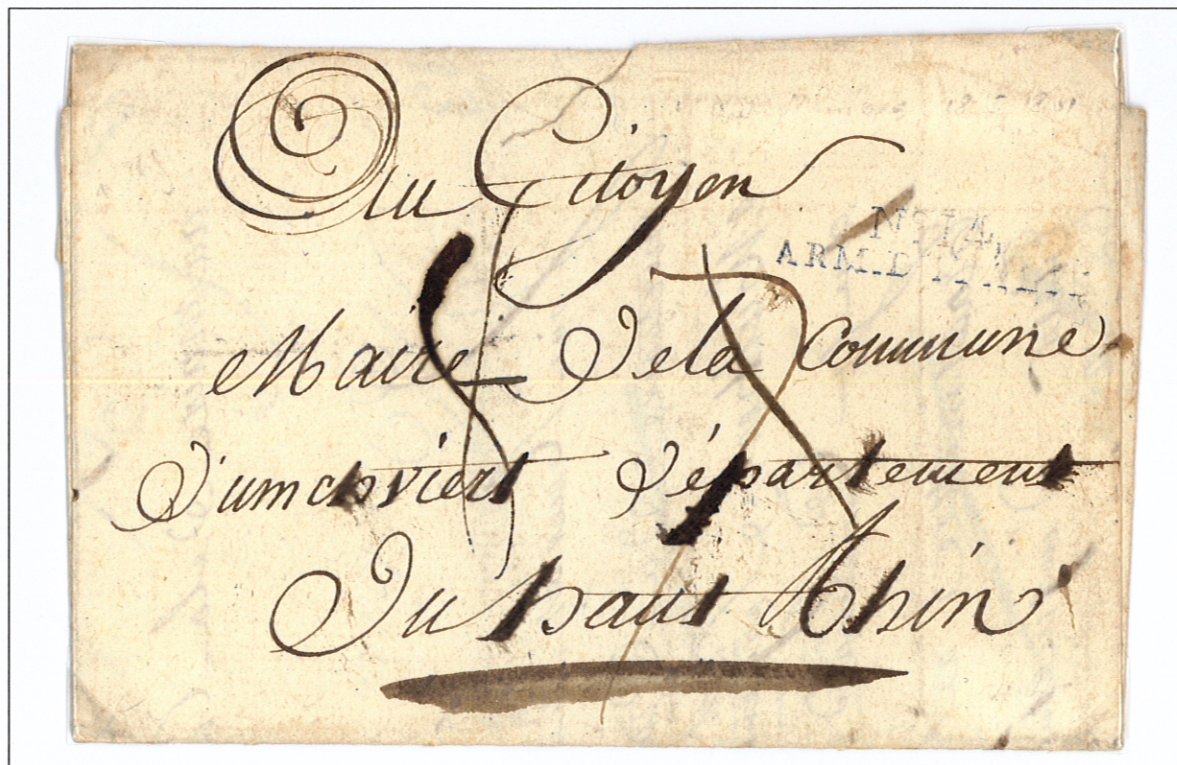 Au Citoyen
N.º 14.
ARM.D
Maire De la Commune
D'umchviert Département
Du haut Rhin